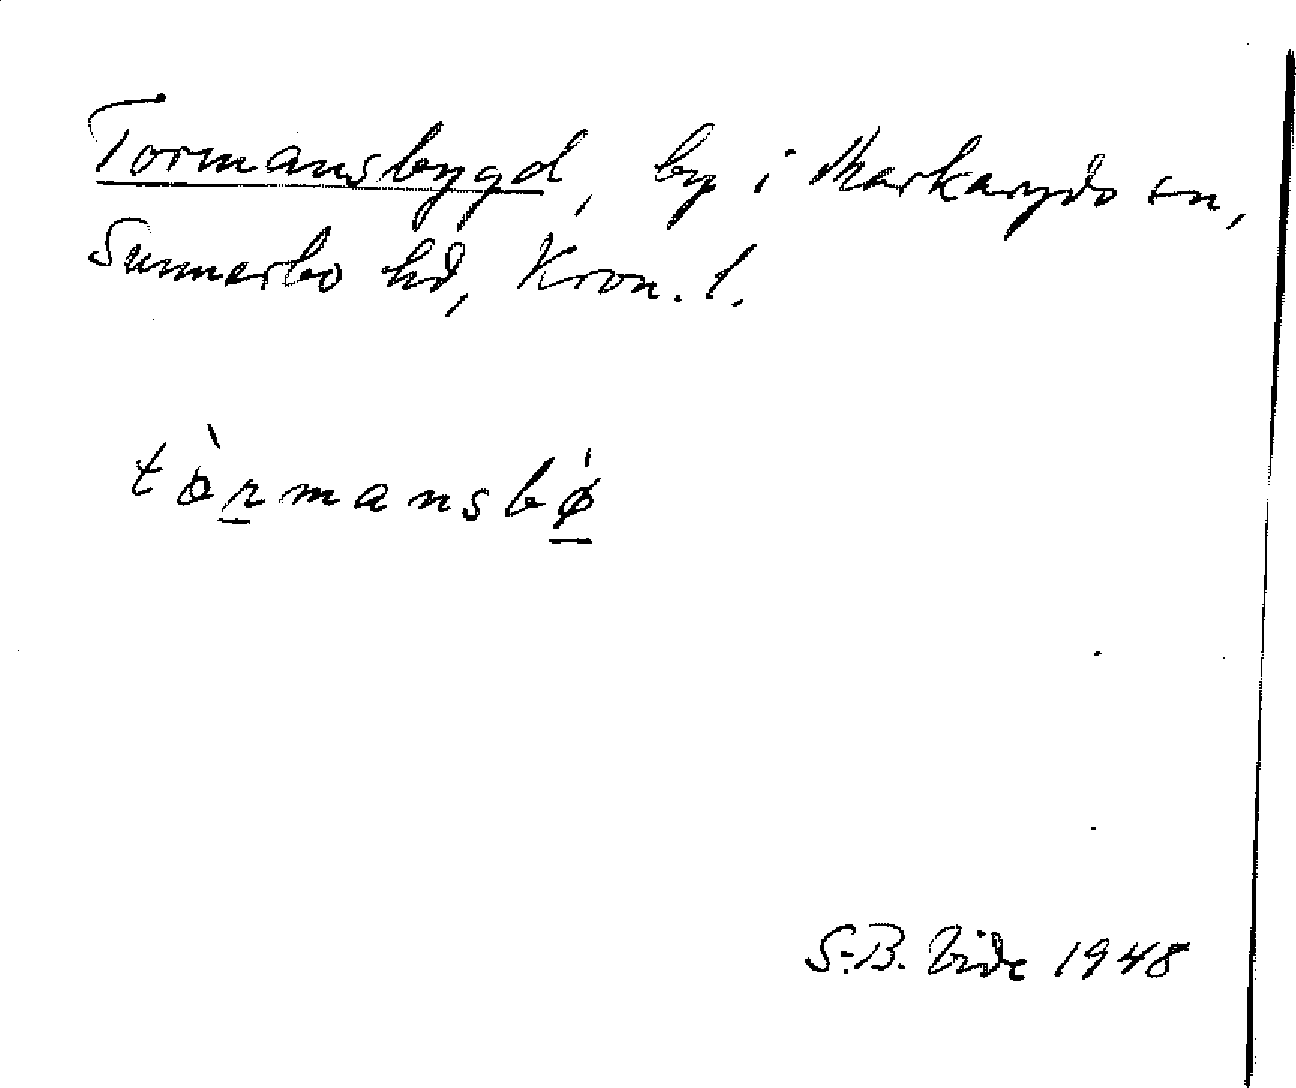 Tormansbygd, by i Markaryds sn,
Sunnerbo hd, Kron. l.
tòrmansbǿ
S-B. Vide 1948